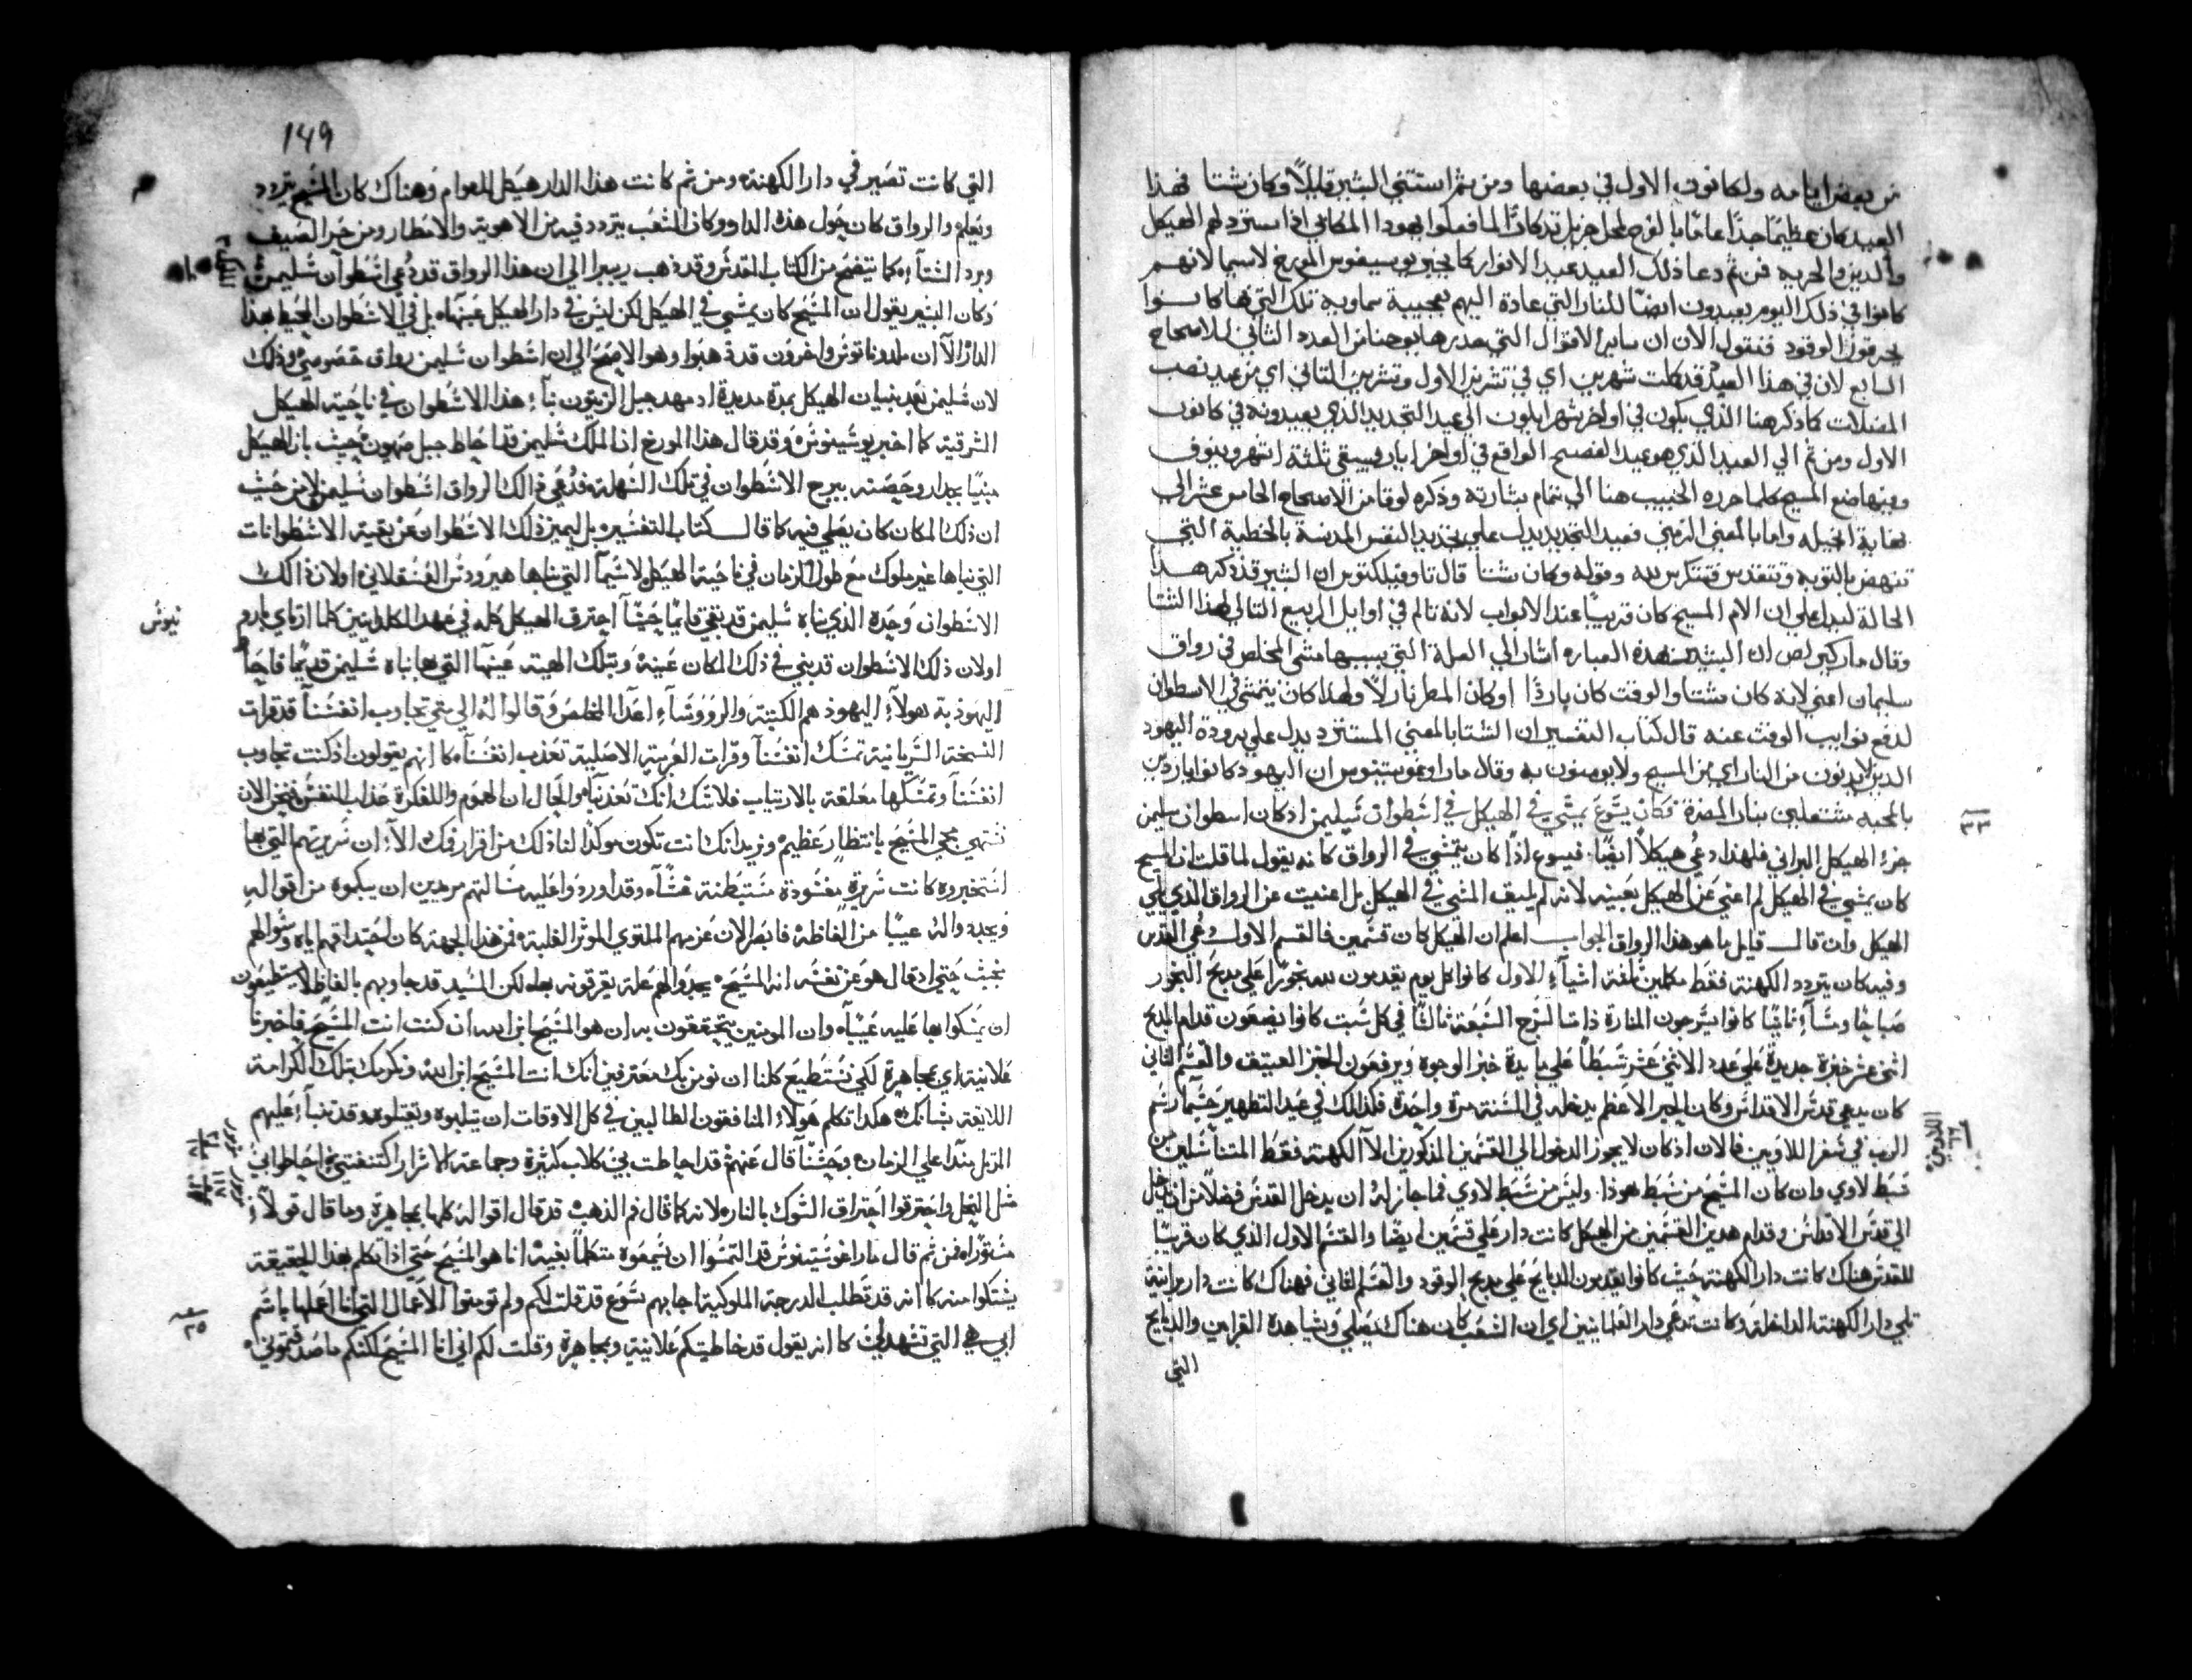 من بعض ايامه ولكانون الاول في بعضها ومن ثم استتني البشير قليلاً وكان شتا فهذا
العيد كان عظيمًا جدًا عامًا بالفرح لمحل جزيل تدكارًا لما فعلوا يهودا المكابي اذا استرد لهم الهيكل
والدين والحريه فمن ثم دعا ذلك العيد عيد الانوار كما يخبر يوسيفوس المورخ لاسيما لانهم
كانوا في ذلك اليوم يعيدون ايضًا للنار التي عادة اليهم بعجيبة سماويه تلك التي بها كانوا
يحرقون الوقود فنقول الان ان ساير الاقوال التي حررها يوحنا من العدد الثاني للاصحاح
السابع لان في هذا العيد قد كملت شهرين اي في تشرين الاول وتشرين التاني اي من عيد نصب
المضلات كما ذكر هنا الذي يكون في اواخر شهر ايلون الي عيد التجديد الذي يعيدونه في كانون
الاول ومن ثم الي العيد الذي هو عيد الفصح الواقع في اواخر ادار يبقي ثلثة اشهر وينوف
وفيها صنع المسيح كلما حرره الحبيب هنا الي تمام بشارته وذكره لوقا من الاصحاح الخامس عشر الي
نهاية انجيله واما بالمعني الرمزي فعيد التجديد يدل علي تجديد النفس المدنسة بالخطية التي
تنهض بالتوبه وتتقدس وتتكرس لله وقوله وكان شتا قال تاوفيلكتوس ان البشير قد ذكر هدا
الحالة ليدل علي ان الام المسيح كان قريبًا عند الابواب لانه تالم في اوايل الربيع التالي لهذا الشتا
وقال مار كيرلص ان البشير بهذه العباره اشار الي العلة التي بسببها مشي المخلص في رواق
سليمان اعني لانه كان مشتا والوقت كان باردًا او كان المطر نازلاً ولهذا كان يتمشي في الاسطوان
لدفع نوايب الوقت عنه قال كتاب التفسير ان الشتا بالمعني المستترد يدل علي برودة اليهود
الدين لا يدنون من النار اي من المسيح ولا يومنون به وقال مار اوغوستينوس ان اليهود كانوا باردين
بالمحبه مشتعلين بنار المضرة فكان يسوع يمشي في الهيكل في اسطوان سليمن اد كان اسطوان سليمن
جزء الهيكل البراني فلهذا دعي هيكلاً ايضًا. فيسوع اذًا كان يتمشي في الرواق كانه يقول لما قلت ان المسيح
كان يمشي في الهيكل لم اعني عن الهيكل بعينه لانه لم يليق المشي في الهيكل بل اعنيت عن الرواق الذي يلي
الهيكل وان قال قايل ما هو هذا الرواق الجواب اعلم ان الهيكل كان قسمين فالقسم الاول دعي القدس
وفيه كان يتردد الكهنة فقط مكملين ثلثة اشياء الاول كانوا كل يوم يقدمون لله بخورًا علي مدبح البخور
صباحًا ومسآء ثانيًا كانوا يسرجون المنارة ذات السرج السبعة ثالثًا في كل سبت كانوا يضعون قدام المدبح
اثني عشر خبزة جديدة علي عدد الاثني عشر سبطًا علي مايدة خبز الوجوه ويرفعون الخبز العتيف والقسم الثاني
كان يدعي قدس الاقداس وكان الحبر الاعظم يدخله في السنة مرة واحدة فكذلك في عيد التطهير حسبما رسم
الرب في سفر اللاويين فالان اد كان لا يجوز الدخول الي القسمين المذكورين الا الكهنة فقط المتناسلين من
سبط لاوي وان كان المسيح من سبط هوذا. وليس من سبط لاوي فما جاز له ان يدخل القدس فضلاً من ان يدخل
الي قدس الاقداس وقدام هدين القسمين من الهيكل كانت دار علي قسمين ايضًا والقسم الاول الذي كان قريبًا
للقدس هناك كانت دار الكهنة حيث كانوا يقدمون الدبايح علي مدبح الوقود والقسم الثاني فهناك كانت دار برانية
تلي دار الكهنة الداخلة وكانت تدعي دار العلمانيين اي ان الشعب كان هناك يصلي ويشاهدة القرابين والدبايح
التي
٣٣
اللاويين
١٦
149
التي كانت تصير في دار الكهنة ومن ثم كانت هذا الدار هيكل للعوام وهناك كان المسيح يتردد
ويعلم والرواق كان حول هذه الدار وكان الشعب يتردد فيه من الاهوية والامطار ومن حر الصيف
وبرد الشتآء كما يتضح من الكتاب المقدس وقد دهب ريبيرا الي ان هذا الرواق قد دعي اسطوان سليمن
وكان البشير يقول ان المسيح كان يمشي في الهيكل لكن ليس في دار الهيكل عينها بل في الاسطوان المحيط بهذا
الدار الا ان ملدوناتوس واخرون قد دهبوا وهو الاصح الي ان اسطوان سليمن رواق خصوصي وذلك
لان سليمن بعد بنيان الهيكل بمدة مديدة اد مهد جبل الزيتون بنآء هذا الاسطوان في ناحية الهيكل
الشرقية كما اخبر يوسيفوس وقد قال هذا المورخ ان الملك سليمن قد احاط جبل صهيون حيث بان الهيكل
مبنيًا بجدار وحصنه ببرج الاسطوان في تلك السهلة فدعي ذالك الرواق اسطوان سليمن لا من حيث
ان ذلك المكان كان يصلي فيه كما قال كتاب التفسير بل ليميز ذلك الاسطوان عن بقية الاسطوانات
التي بناها غير ملوك مع طول الزمان في ناحية الهيكل لاسيما التي بناها هيرودس العسقلاني او لان ذالك
الاسطوان وحده الذي بناه سليمن قد بقي قايمًا حيثا احترق الهيكل كله في عهد الكلدانيين كلما ارتاي بارو
نيوس
او لان ذلك الاسطوان قد بني في ذلك المكان عينه وبتلك الهية عينها التي بها بناه سليمن قديمًا فاحا
اليهود به هولآء اليهود هم الكتبة والروسآء اعدآ المخلص وقالوا له الي متي تجادب انفسنا قد قرات
النسخة السريانية تمسك انفسنا وقرات العربية الاصلية تعذب انفسنا كانهم يقولون اذ كنت تجاوب
انفسنا وتمسكها معلقة بالارتياب فلا شك انك تعذبنا والحال ان الهموم والفكرة عذاب النفس فنحن الان
نشتهي مجي المسيح بانتظار عظيم ونريد انك انت تكون موكدًا لنا ذلك من اقرار فمك الا ان سريرتهم التي بها
استخبروه كانت سريرة مفسودة مستبطنة غشآ وقد اوردوا عليه سالتهم مريدين ان يبكموه من اقواله
ويجدوا له عيبًا من الفاظه فابصر الان عزمهم الملتوي الموثر الغلبة فمن هذا الجهة كان احتداقهم اياه وسوالهم
بخبث حتي اد قال هو عن نفسه انه المسيح يجدوا لهم علة يقرفونه بها لكن السيد قد جاوبهم بالفاظ لا يستطيعون
ان يمسكوا بها عليه عيبًا وان المومنين يتحققون به ان هو المسيح ابن الله ان كنت انت المسيح فاخبرنا
علانية اي مجاهرة لكي نستطيع كلنا ان نومن بك معترفين انك انت المسيح ابن الله ونكرمك بتلك الكرامة
اللايقة بشانك هكدا تكلم هولاء المنافقون الطالبين في كل الاوقات ان يثلبوه ويقتلوه وقد تنبآء عليهم
المرتل منذا علي الزمان وحسنآ قال عنهم قد احاطت بي كلاب كثيرة وجماعة الاشرار اكتنفتني احاطوا بي
مثل النحل واحترقوا احتراق الشوك بالنار لانه كما قال فم الذهب قد قال اقواله كلها مجاهرة وما قال قولاً
مستورًا فمن ثم قال مار اغوستينوس قد التمسوا ان يسمعوه متكلمًا بغيه انا هو المسيح حتي اذا تكلم بهذا الحقيقة
يشتكوا منه كانه قد تطلب الدرجة الملوكية اجابهم يسوع قد قلت لكم ولم تومنوا الاعمال التي انا اعملها باسم
ابي هي التي تشهد لي كانه يقول قد خاطبتكم علانية ومجاهرة وقلت لكم اني انا المسيح لكنكم ما صدقتموني
مزمور
١١٧
٢٥